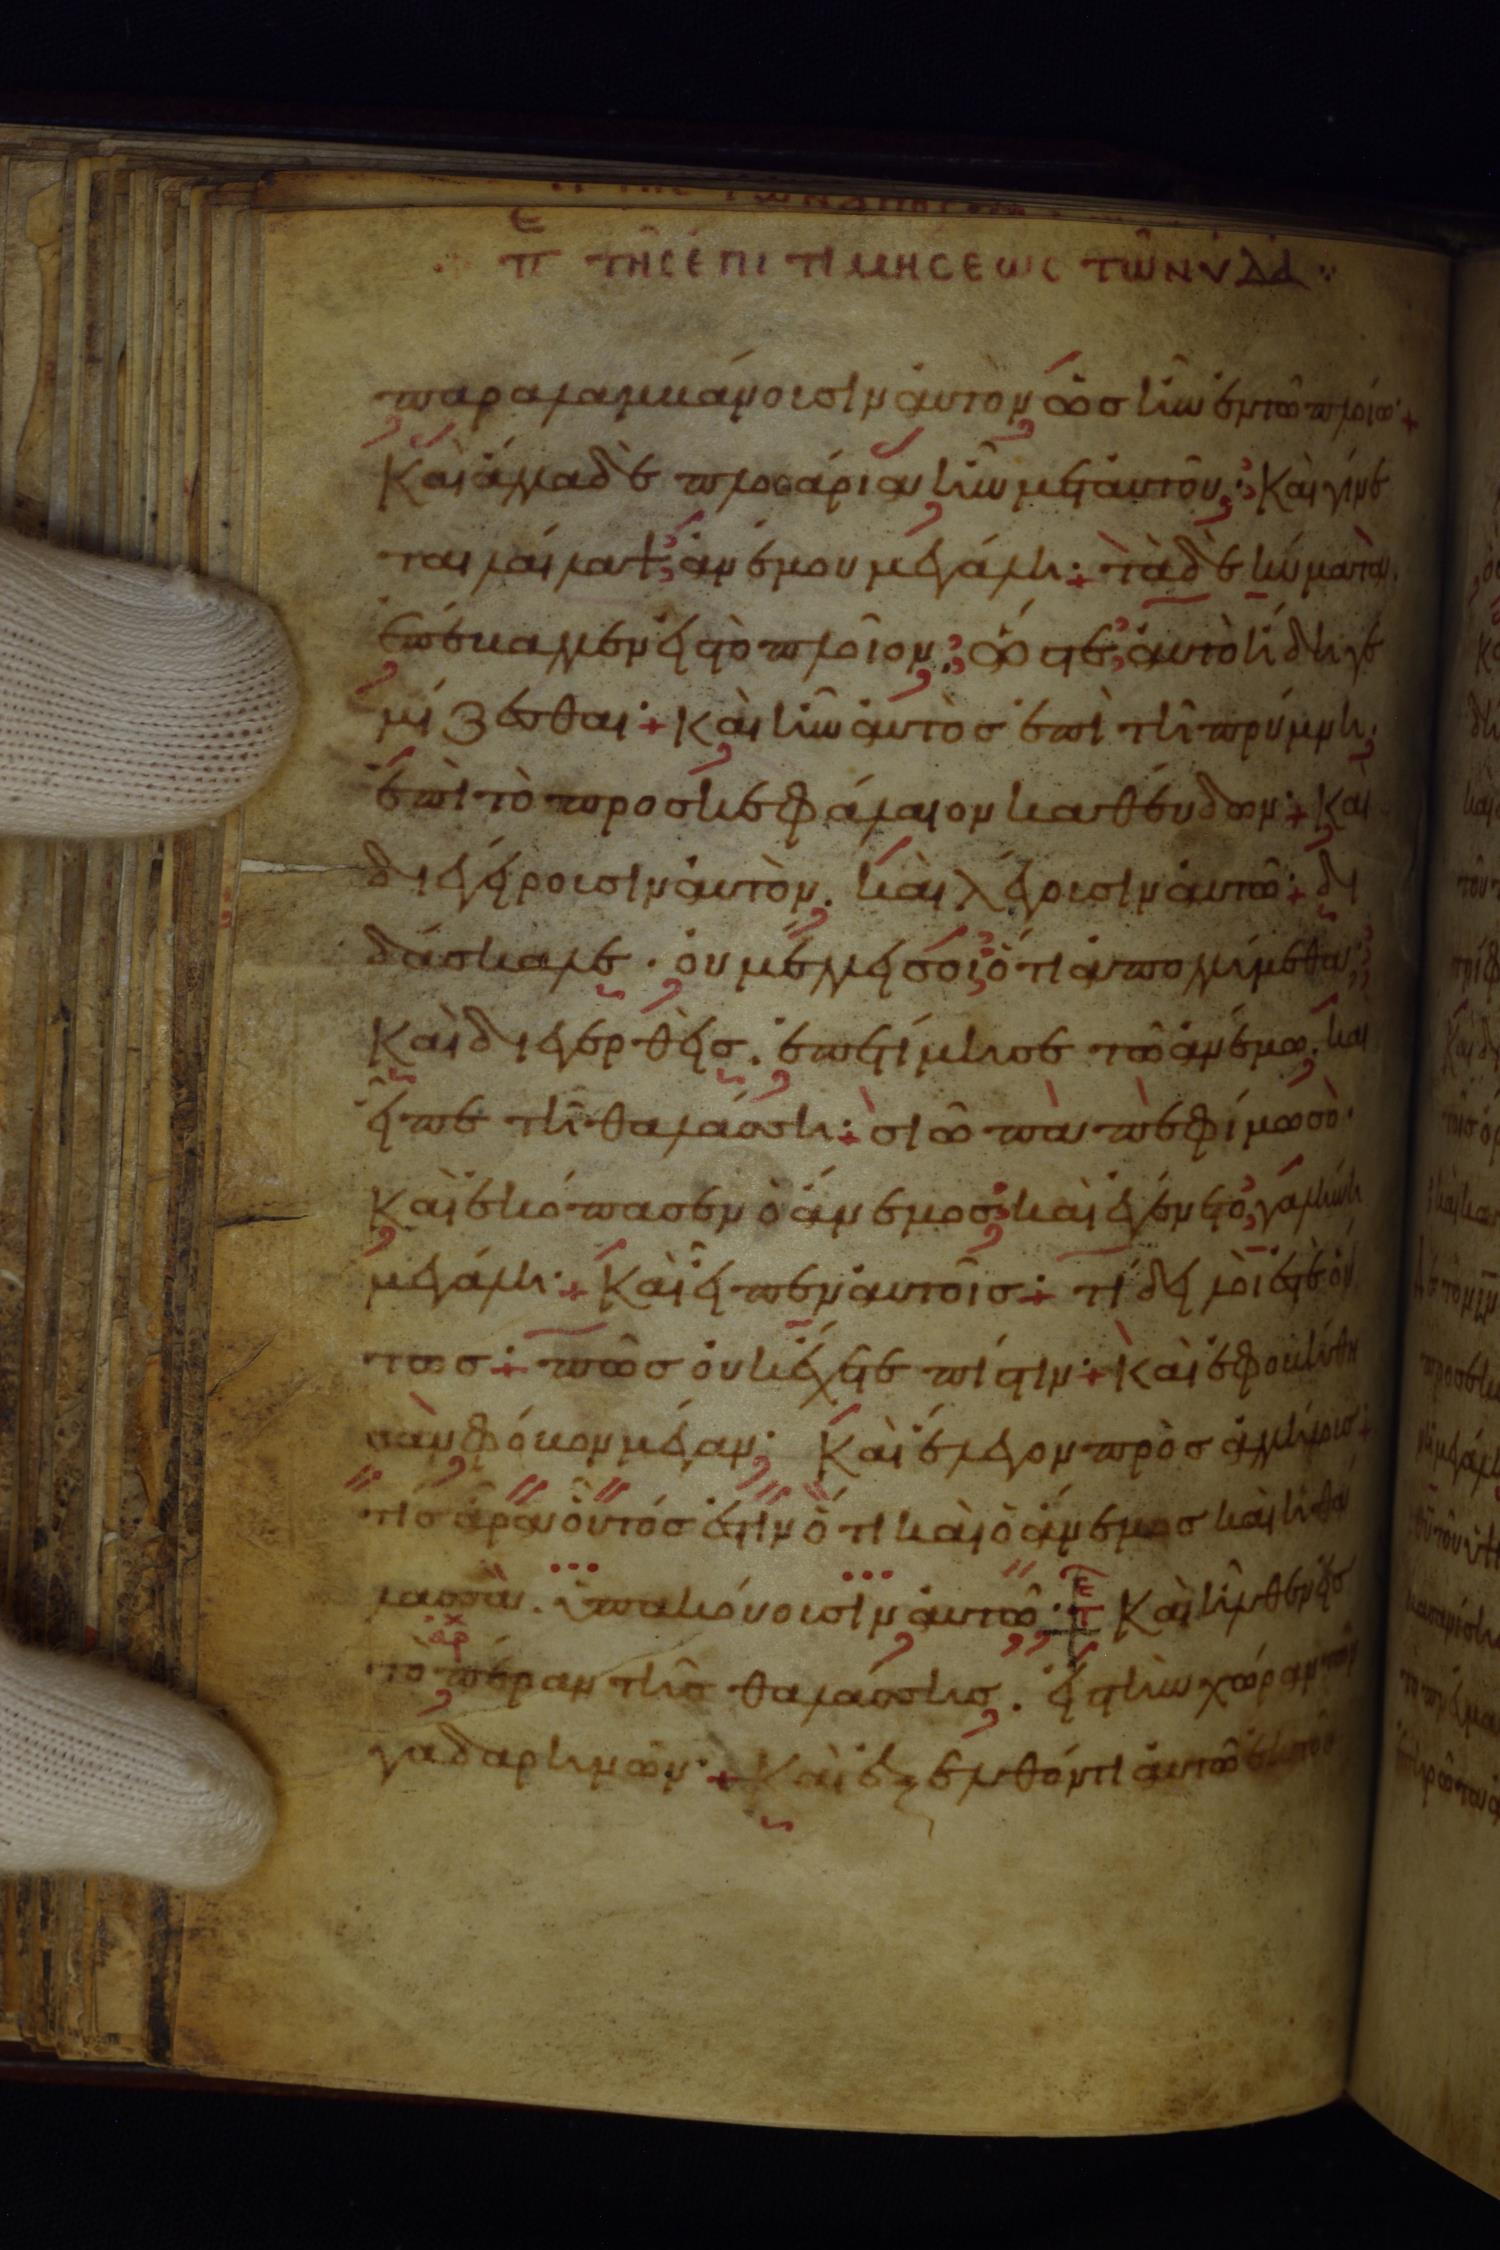 π ε τῆς ἐπιτιμήσεως τῶν ὑδά
παραλαμβάνουσιν αὐτὸν ὡς ἦν ἐν τῶ πλοίω·
Καὶ ἄλλα δὲ πλοιάρια ἦν μετ αὐτοῦ· Καὶ γίνε
ται λαίλαψ ἀνέμου μεγάλη· τὰ δὲ κύματα
ἐπέβαλλεν εἰς τὸ πλοῖον· ὥστε αὐτὸ ἤδη γε
μίζεσθαι· Καὶ ἦν αὐτὸς ἐπὶ τῆ πρύμνη·
ἐπὶ τὸ προσκεφάλαιον καθεύδων· Καὶ
διεγείρουσιν αὐτὸν. καὶ λέγουσιν αὐτῶ· δι
δάσκαλε· οὐ μέλει σοι ὅτι ἀπολλύμεθα·
Καὶ διεγερθεὶς. ἐπετίμησε τῶ ἀνέμω. καὶ
εἶπε τῆ θαλάσση· σιώπα πεφίμωσο·
Καὶ ἐκόπασεν ὁ ἄνεμος καὶ ἐγένετο γαλήνη
μεγάλη· Καὶ εἶπεν αὐτοῖς· τί δειλοί ἐστε οὕ
τως· πῶς οὐκ ἔχετε πίστιν· Καὶ ἐφοβήθη
σαν φόβον μέγαν· Καὶ ἔλεγον πρὸς ἀλλήλους·
τίς ἄρα οὗτός ἐστιν ὅτι καὶ ὁ ἄνεμος καὶ ἡ θά
λασσα. ὑπακούουσιν αὐτῶ· τ ε Καὶ ἦλθεν εἰς
αρχ
τὸ πέραν τῆς θαλάσσης. εἰς τὴν χώραν τῶν
γαδαρηνῶν· Καὶ ἐξελθόντι αὐτῶ ἐκ τοῦ